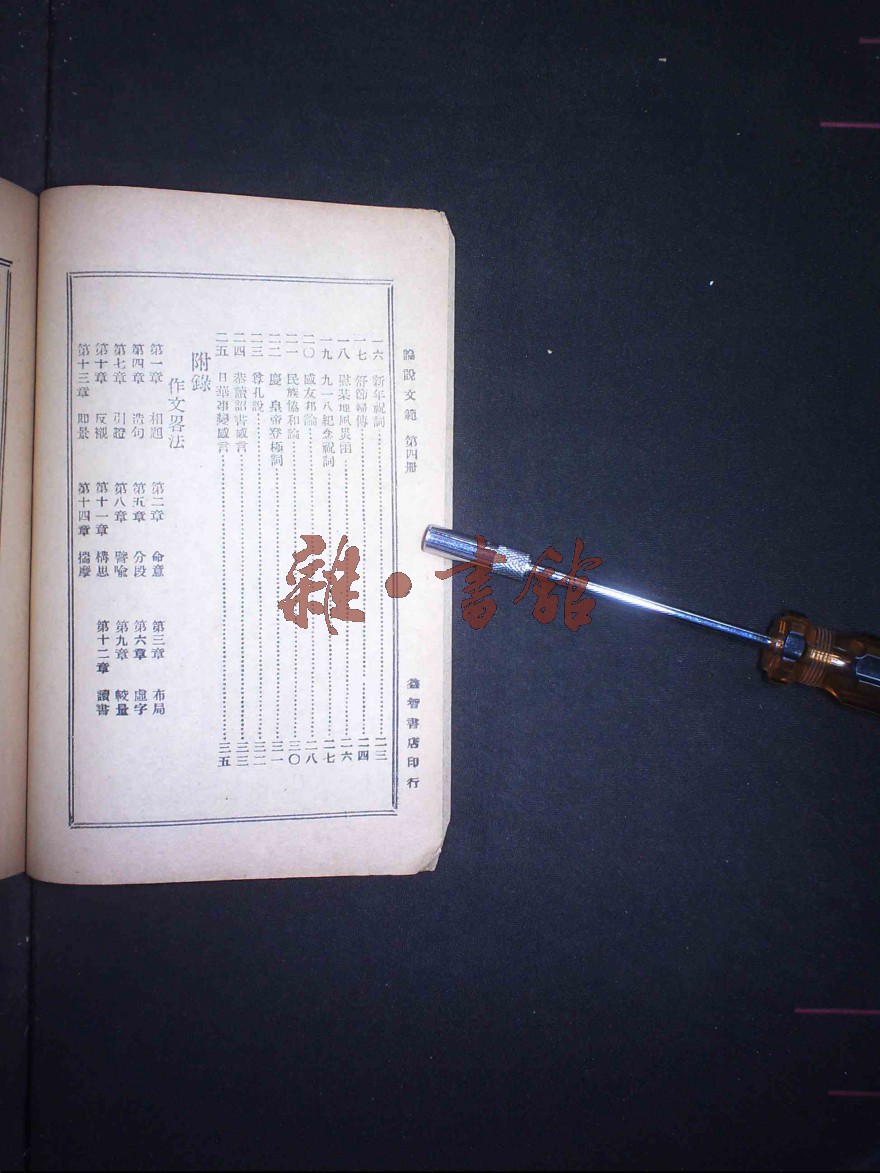 論說文範 第四冊
一六 新年祝詞 二三
一七 節婦傳 二四
一八 慰某地風災函 二六
一九 九一八紀念祝詞 二七
二〇 盛友邦論 二八
二一 民族協和論 三〇
二二 慶 皇帝登極詞 三一
二三 尊孔說 三二
二四 恭讀詔書感言 三三
二五 日華事變感言 三五
附錄
作文畧法
第一章 相題 第二章 命意 第三章 布局
第四章 造句 第五章 分段 第六章 虛字
第七章 引證 第八章 譬喻 第九章 較量
第十章 反襯 第十一章 構思 第十二章 讀書
第十三章 即景 第十四章 揣摩
益智書店印行
雜·書館